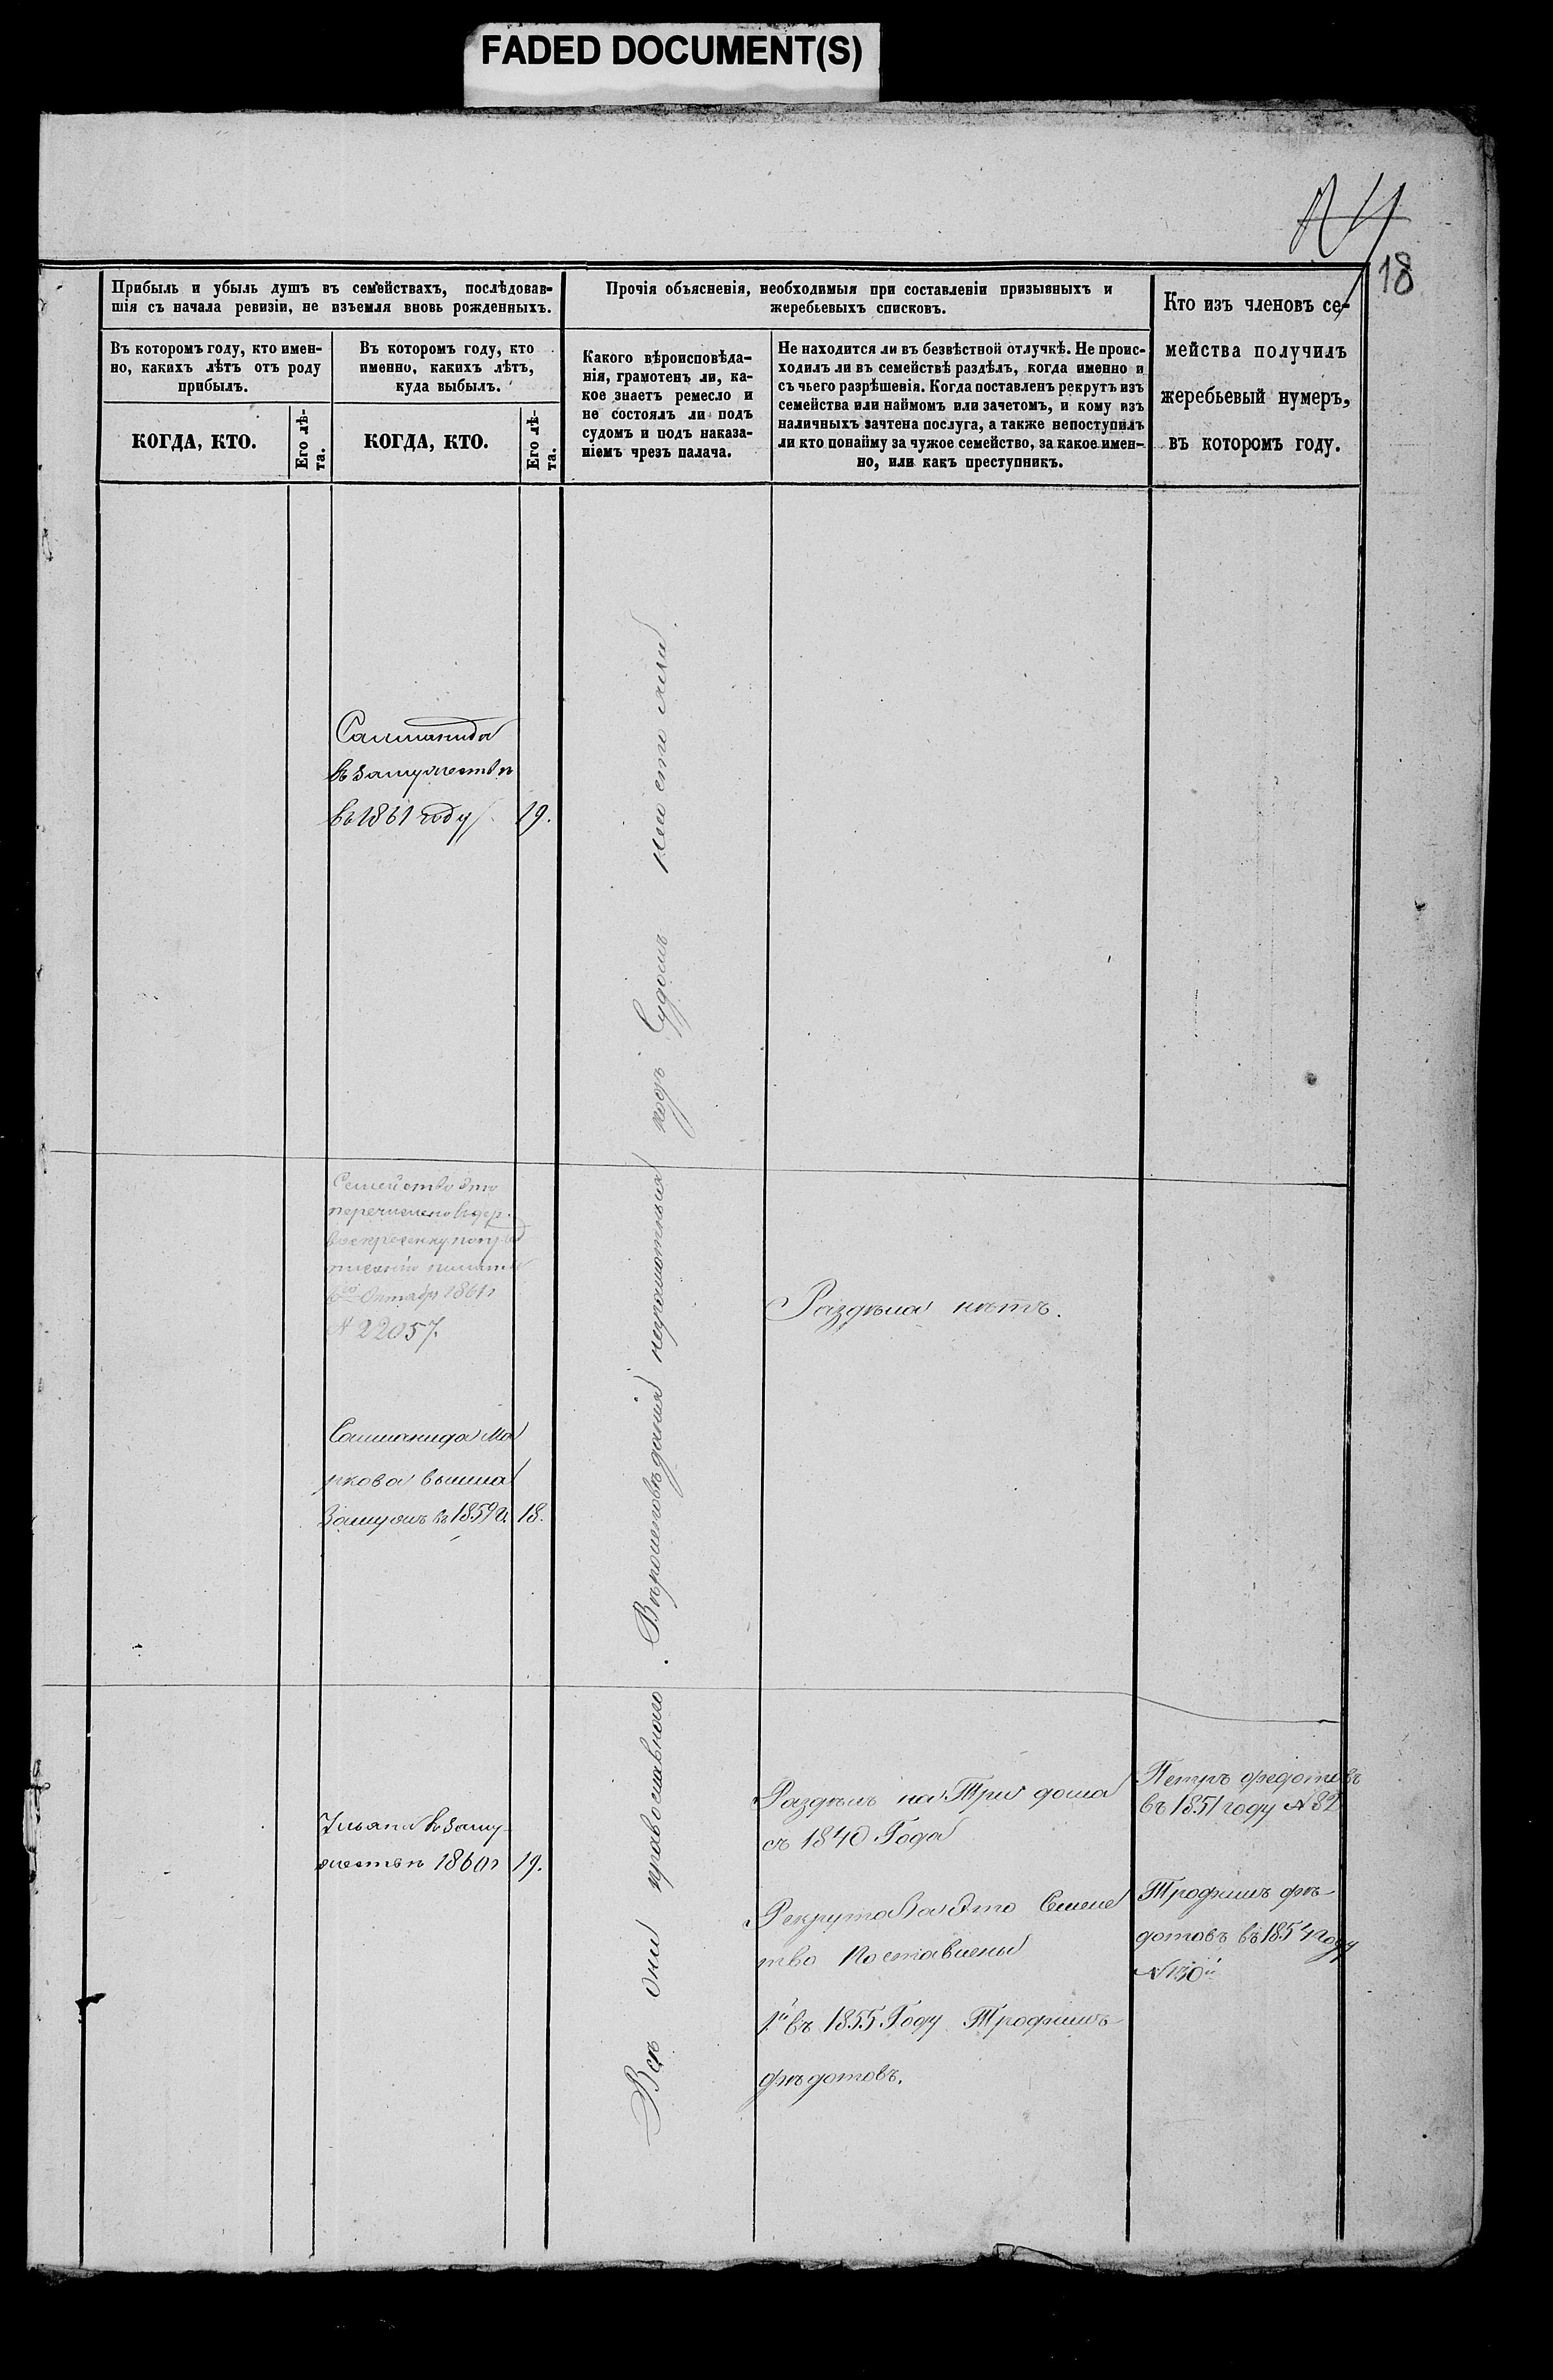 FADED DOCUMENT(S)
18
Прибыль и убыль душъ въ семействахъ, послѣдовав-
шія съ начала ревизіи, не изъемля вновь рожденныхъ.
Прочія объясненія, необходимыя при составленіи призывныхъ и
жеребьевыхъ списковъ.
Кто изъ членовъ се-
мейства получилъ
жеребьевый нумеръ,
въ которомъ году.
Въ которомъ году, кто имен-
но, какихъ лѣтъ отъ роду
прибылъ.
Въ которомъ году, кто
именно, какихъ лѣтъ,
куда выбылъ.
Какого вѣроисповѣда-
нія, грамотенъ ли, ка-
кое знаетъ ремесло и
не состоялъ ли подъ
судомъ и подъ наказа-
ніемъ чрезъ палача.
Не находится ли въ безвѣстной отлучкѣ. Не проис-
ходилъ ли въ семействѣ раздѣлъ, когда именно и
съ чьего разрѣшенія. Когда поставленъ рекрутъ изъ
семейства или наймомъ или зачетомъ, и кому изъ
наличныхъ зачтена послуга, а также непоступилъ
ли кто понайму за чужое семейство, за какое имен-
но, или какъ преступникъ.
КОГДА, КТО.
Его лѣ-
та.
КОГДА, КТО.
Его лѣ-
та.
Саломанида
въ замужествѣ
въ 1861 году 19.
Семейство это
перечислено въ дер.
Октября 1861 г
№ 22057.
Маркова вышла
Замужъ въ 1859 г. 18.
Ульяна въ заму-
жествѣ 1860 г 19.
Всѣ они православнаго Вѣроисповѣданія неграмотныя подъ Судомъ
Раздѣла нѣтъ.
Раздѣлъ на Три дома
съ 1840 Года
Рекрута За Это Семей
тво поставлены
1й въ 1855 Году Трофимъ
Фѣдотовъ.
Петръ Федотовъ
въ 1851 году № 82
Трофимъ Фѣ-
дотовъ въ 1854 году
№ 130й